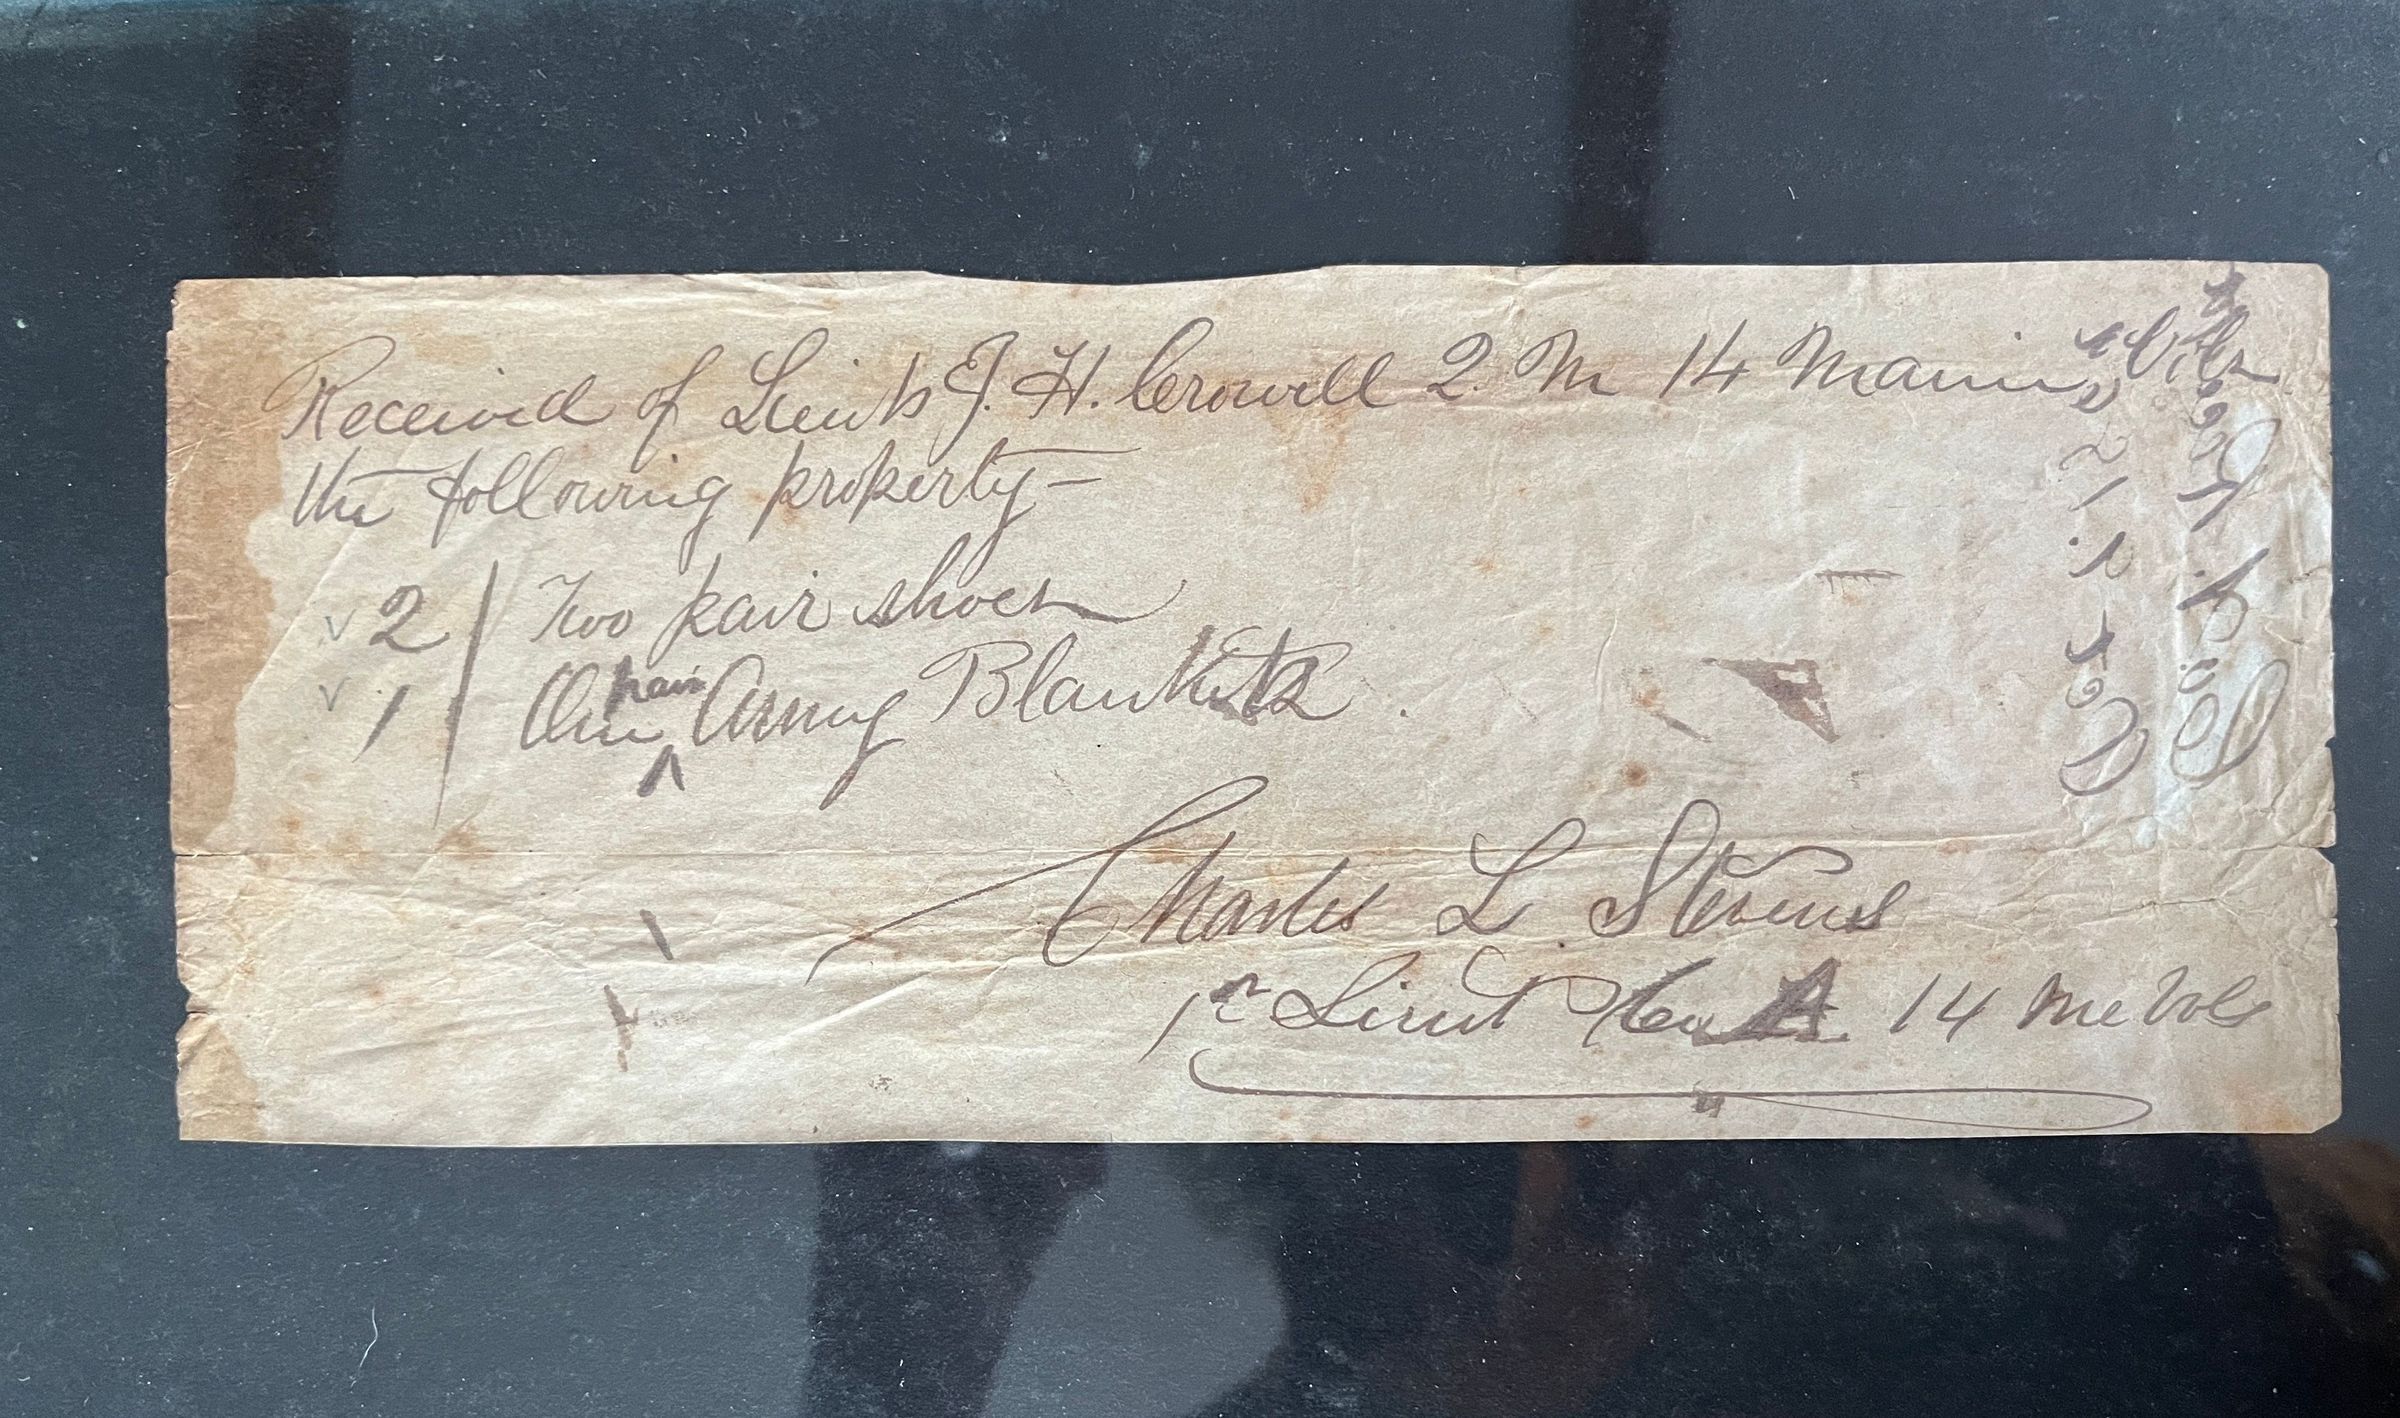 Received of Lieut J. H. Crowell Q. M 14 Maine Vols
the following property—
2 Two pair shoes
1 One pair Army Blankets.
Charles L Stevens
1st Lieut Co A. 14 Me Vols